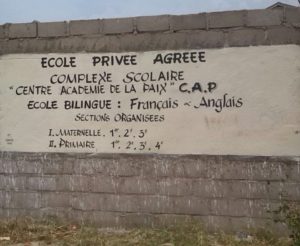 ECOLE PRIVEE AGREEE
COMPLEXE SCOLAIRE
"CENTRE ACADEMIE DE LA PAIX" C.A.P
ECOLE BILINGUE : Français - Anglais
SECTIONS ORGANISEES
I. MATERNELLE. 1re, 2e, 3e
II. PRIMAIRE 1re, 2e, 3e, 4e